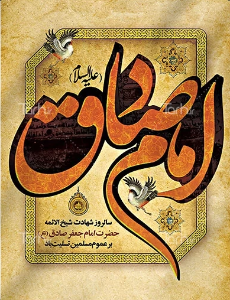 (علیه السلام)
امام صادق
سالروز شهادت شیخ الائمه
حضرت امام جعفر صادق (ع)
بر عموم مسلمین تسلیت باد